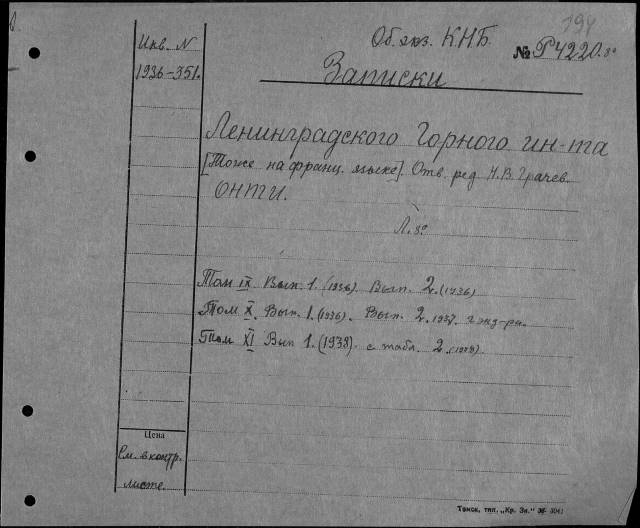 194
Об. экз. КНБ.
Инв. N
№ Р4220. 8°
1936-351.
Записки
Ленинградского Горного ин-та
[Тоже на франц. языке]. Отв. ред. Н.В. Грачев.
ОНТИ.
Л. 8°
Том IX Вып. 1. (1936). Вып. 2. (1936)
Том X. Вып. 1. (1936). Вып. 2. 1937.
Том XI Вып 1. (1938). с табл. 2. (1938).
Цена
См. в контр.
листе.
Томск, тип. „Кр. Зн."